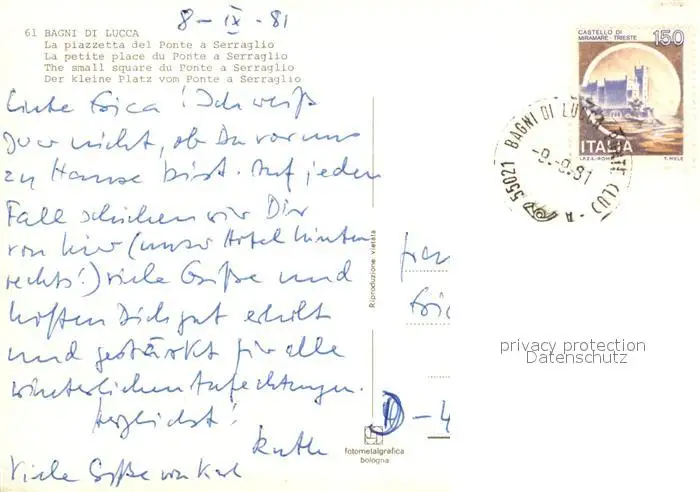 8-IX-81
61 BAGNI DI LUCCA
La piazzetta del Ponte a Serraglio
La petite place du Ponte a Serraglio
The small square du Ponte a Serraglio
Der kleine Platz vom Ponte a Serraglio
Liebe Erica! Ich weiß
zwar nicht, ob Du vor uns
zu Hause bist. Auf jeden
Fall schicken wir Dir
von hier (unser Hotel hinten
rechts!) viele Grüße und
hoffen Dich gut erholt
und gestärkt für alle
winterlichen Anfechtungen.
Herzlichst!
Ruth
Viele Grüße von Karl
Riproduzione vietata
fotometalgrafica
bologna
CASTELLO DI
MIRAMARE-TRIESTE
150
ITALIA
I.P.Z.S.-ROMA
T. MELE
55021 BAGNI DI LUCCA (LU)
-9.-9.81
Frau
Eric
D-4
privacy protection
Datenschutz